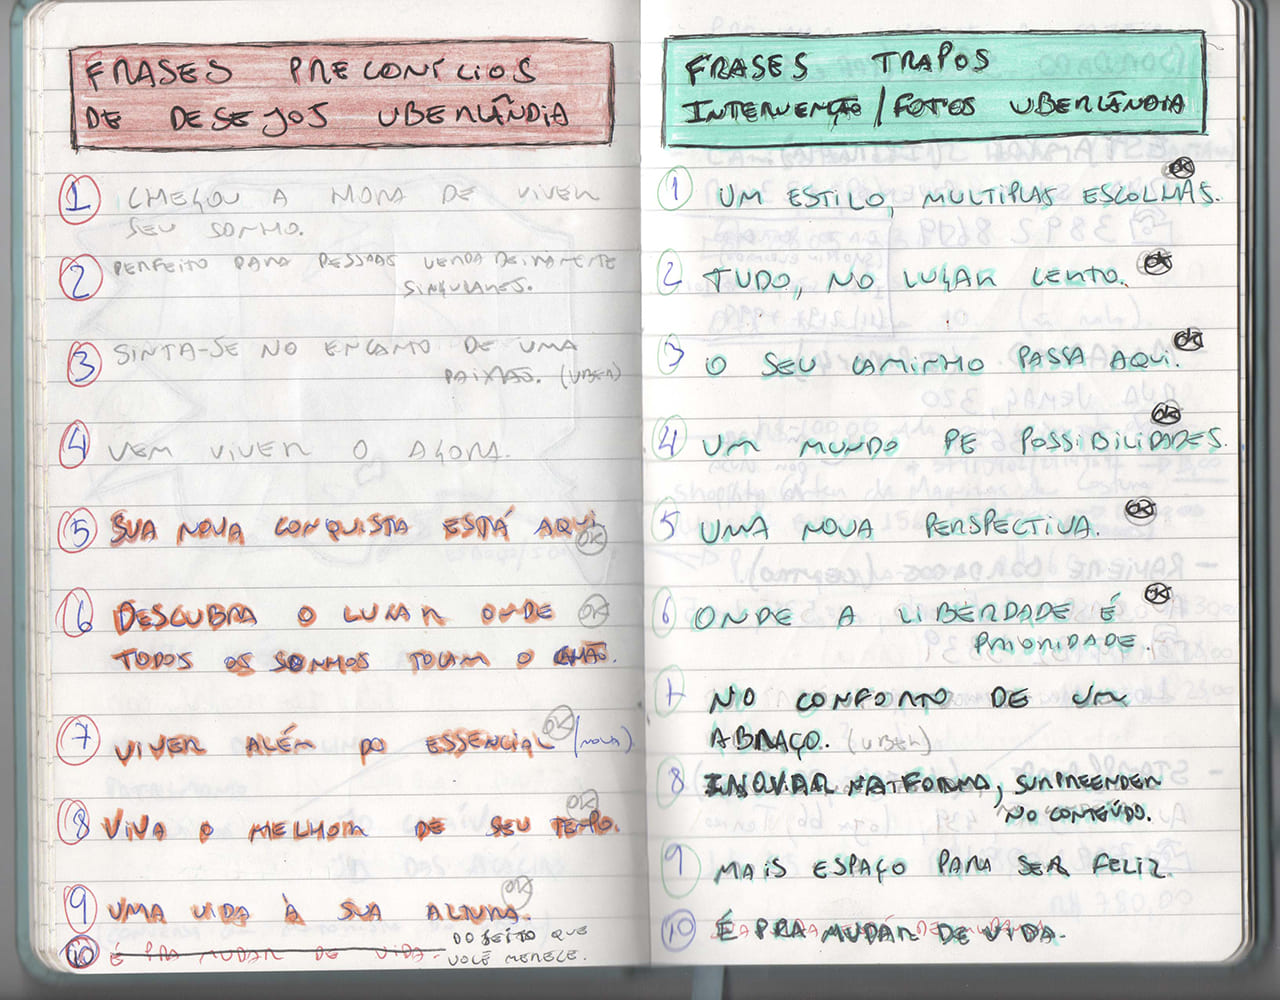 FRASES PRECONÍCIOS
DE DESEJOS UBERLÂNDIA
1 CHEGOU A HORA DE VIVER
SEU SONHO.
2 PERFEITO PARA PESSOAS VERDADEIRAMENTE
SINGULARES.
3 SINTA-SE NO ENCANTO DE UMA
PAIXÃO. (UBER)
4 VEM VIVER O AGORA.
5 SUA NOVA CONQUISTA ESTÁ AQUI OK
6 DESCUBRA O LUGAR ONDE OK
TODOS OS SONHOS TOCAM O CHÃO.
7 VIVER ALÉM DO ESSENCIAL OK (NOVA)
8 VIVA O MELHOR DE SEU TEMPO. OK
9 UMA VIDA À SUA ALTURA. OK
10 É PRA MUDAR DE VIDA. DO JEITO QUE
VOCÊ MERECE.
FRASES TRAPOS
INTERVENÇÃO / FOTOS UBERLÂNDIA
1 UM ESTILO, MULTIPLAS ESCOLHAS. OK
2 TUDO, NO LUGAR CERTO. OK
3 O SEU CAMINHO PASSA AQUI. OK
4 UM MUNDO DE POSSIBILIDADES. OK
5 UMA NOVA PERSPECTIVA. OK
6 ONDE A LIBERDADE É OK
PRIORIDADE.
7 NO CONFORTO DE UM
ABRAÇO. (UBER)
8 INOVAR NA FORMA, SURPREENDER
NO CONTEÚDO.
9 MAIS ESPAÇO PARA SER FELIZ.
10 É PRA MUDAR DE VIDA.